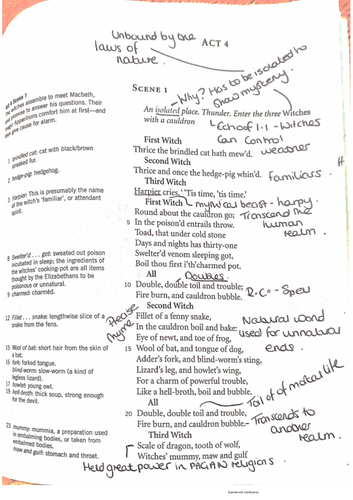 Unbound by the
laws of
nature.
ACT 4
Act 4 Scene 1
The witches assemble to meet Macbeth,
and promise to answer his questions. Their
magic apparitions comfort him at first—and
then give cause for alarm.
SCENE 1
Why? Has to be isolated to
show mystery.
An isolated place. Thunder. Enter the three Witches
with a cauldron
Echo of 1.1 - Witches
can control
weather
First Witch
Thrice the brindled cat hath mew'd.
Second Witch
Thrice and once the hedge-pig whin'd.
Familiars.
Third Witch
Harpier cries, 'Tis time, 'tis time.'
First Witch
mythical beast - harpy.
Round about the cauldron go;
Transcend the
human
realm.
5 In the poison'd entrails throw.
Toad, that under cold stone
Days and nights has thirty-one
Swelter'd venom sleeping got,
Boil thou first i'th'charmed pot.
All
Doubles
10 Double, double toil and trouble;
Fire burn, and cauldron bubble.
R.C - Spell
Second Witch
Fillet of a fenny snake,
In the cauldron boil and bake:
Eye of newt, and toe of frog,
15 Wool of bat, and tongue of dog,
Adder's fork, and blind-worm's sting,
Lizard's leg, and howlet's wing,
For a charm of powerful trouble,
Like a hell-broth, boil and bubble.
Rhyme
Natural word
used for unnatural
ends.
All
Toil of mortal life
20 Double, double toil and trouble,
Fire burn, and cauldron bubble.
Transcends to
another
realm.
Third Witch
Scale of dragon, tooth of wolf,
Witches' mummy, maw and gulf
Held great power in PAGAN religions.
1 brindled cat: cat with black/brown
streaked fur.
2 hedge-pig: hedgehog.
3 Harpier: This is presumably the name
of the witch's 'familiar', or attendant
spirit.
8 Swelter'd . . . got: sweated out poison
incubated in sleep; the ingredients of
the witches' cooking-pot are all items
thought by the Elizabethans to be
poisonous or unnatural.
9 charmed: charmèd.
12 Fillet . . . snake: lengthwise slice of a
snake from the fens.
15 Wool of bat: short hair from the skin of
a bat.
16 fork: forked tongue.
blind-worm: slow-worm (a kind of
legless lizard).
17 howlet: young owl.
19 hell-broth: thick soup, strong enough
for the devil.
23 mummy: mummia, a preparation used
in embalming bodies, or taken from
embalmed bodies.
maw and gulf: stomach and throat.